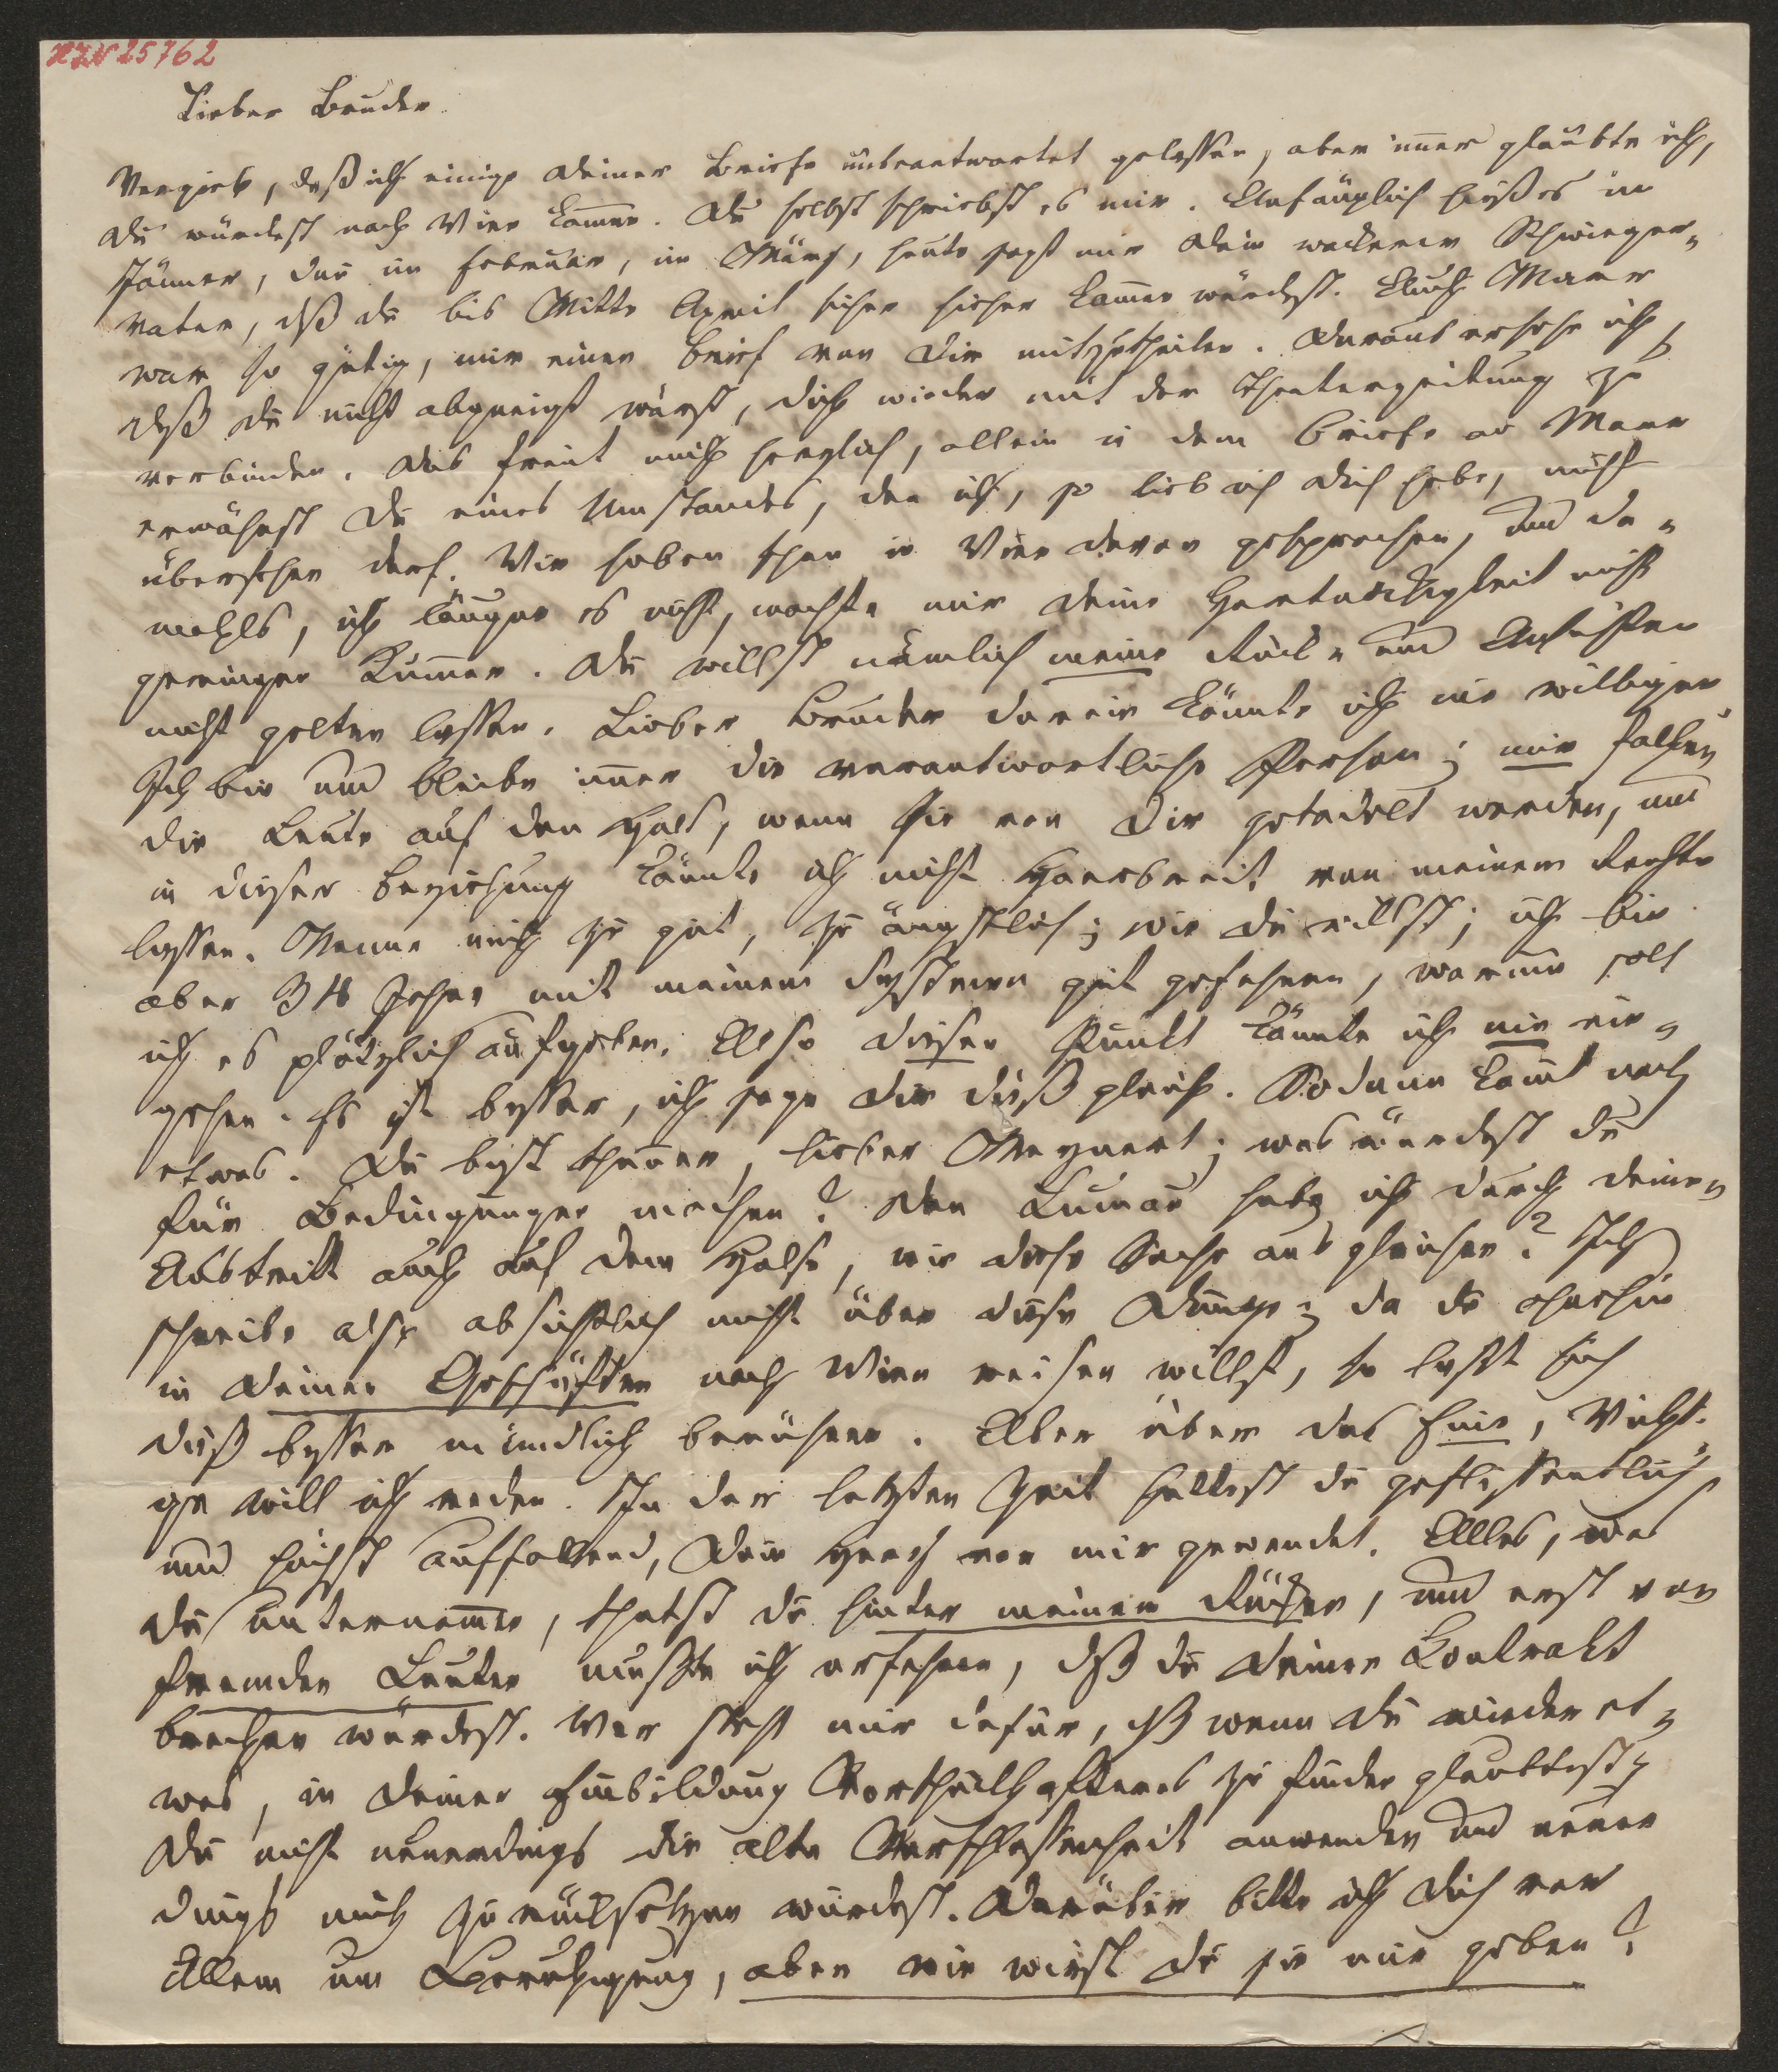 HIN 25762
Lieber Bruder.
Vergieb, daß ich einige Deiner Briefe unbeantwortet gelassen, aber im̄er glaubte ich,
du würdest nach Wien kom̄en. Du selbst schriebst es mir. Anfänglich hieß es im
Jänner, dan im Februar, im März, heute sagt mir Dein wackerer Schwieger=
vater, daß du bis Mitte April sicher hieher kom̄en würdest. Auch Marr
war so gütig, mir einen Brief von Dir mitzutheilen. Daraus ersehe ich,
daß du nicht abgeneigt wärst, dich wieder mit der Theaterzeitung zu
verbinden. Das freut mich herzlich, allein in dem Briefe an Marr
erwähnst Du eines Umstandes, den ich, so lieb ich Dich habe, nicht
übersehen darf. Wir haben schon in Wien davon gesprochen, und da=
mahls, ich läugne es nicht, machte mir Deine Hartnäckigkeit nicht
geringen Kum̄er. Du willst nämlich meine Rück= und Ansichten
nicht gelten lassen. Lieber Bruder darein könnte ich nie willigen
Ich bin und bleibe im̄er die verantwortliche Person; mir fallen
die Leute auf den Hals, wenn sie von Dir getadelt werden, und
in dieser Beziehung könnte ich nicht Haarbreit von meinem Rechte
lassen. Nenne mich zu gut, zu ängstlich; wie du willst; ich bin
aber 34 Jahre mit meinem Systeme gut gefahren, warum soll
ich es plötzlich aufgeben. Also diesen Punkt könnte ich nie ein=
gehen. Es ist besser, ich sage dir dieß gleich. Sodann kom̄t noch
etwas. Du bist theuer, lieber Meynert; was würdest du
für Bedingungen machen? Den habe ich durch deinen
Austritt auch auf dem Halse, wie diese Sache ausgleichen? Ich
schreibe also absichtlich nicht über diese Dinge; da du ohnehin
in Deinen Geschäften nach Wien reisen willst, so läßt sich
dieß besser mündlich berühren. Aber über das Eine, Wichti-
ge will ich reden. In der letzten Zeit hattest du geflissentlich
und höchst auffallend, Dein Herz von mir gewendet. Alles, was
du unternom̄en, thatst du hinter meinem Rücken, und erst von
fremden Leuten mußte ich erfahren, daß du Deinen Contrakt
brechen würdest. Wer steht mir dafür, daß wenn du wieder et=
was, in Deiner Einbildung Vortheilhafteres zu finden glaubtest,
Du nicht neuerdings die alte Verschlossenheit anwenden und neuer
dings mich zurücksetzen würdest. Darüber bitte ich Dich vor
Allem um Beruhigung, aber wie wirst du sie mir geben?